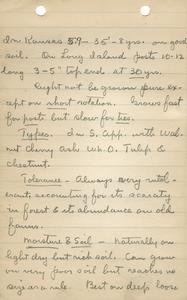 In Kansas 59 - 35' - 8 yrs. on good
soil. On Long Island posts 10-12
long 3-5" top ends at 30 yrs.
Might not be grown pure ex-
cept on short rotation. Grows fast
for posts but slow for ties.
Types. In S. App. with Wal-
nut Cherry Ash Wh.O. Tulip &
chestnut.
Tolerance - Always very intol-
erant, accounting for its scarcity
in forest & its abundance on old
farms.
Moisture & Soil - naturally on
light dry but rich soil. Can grow
on very poor soil but reaches no
size as a rule. Best on deep loose